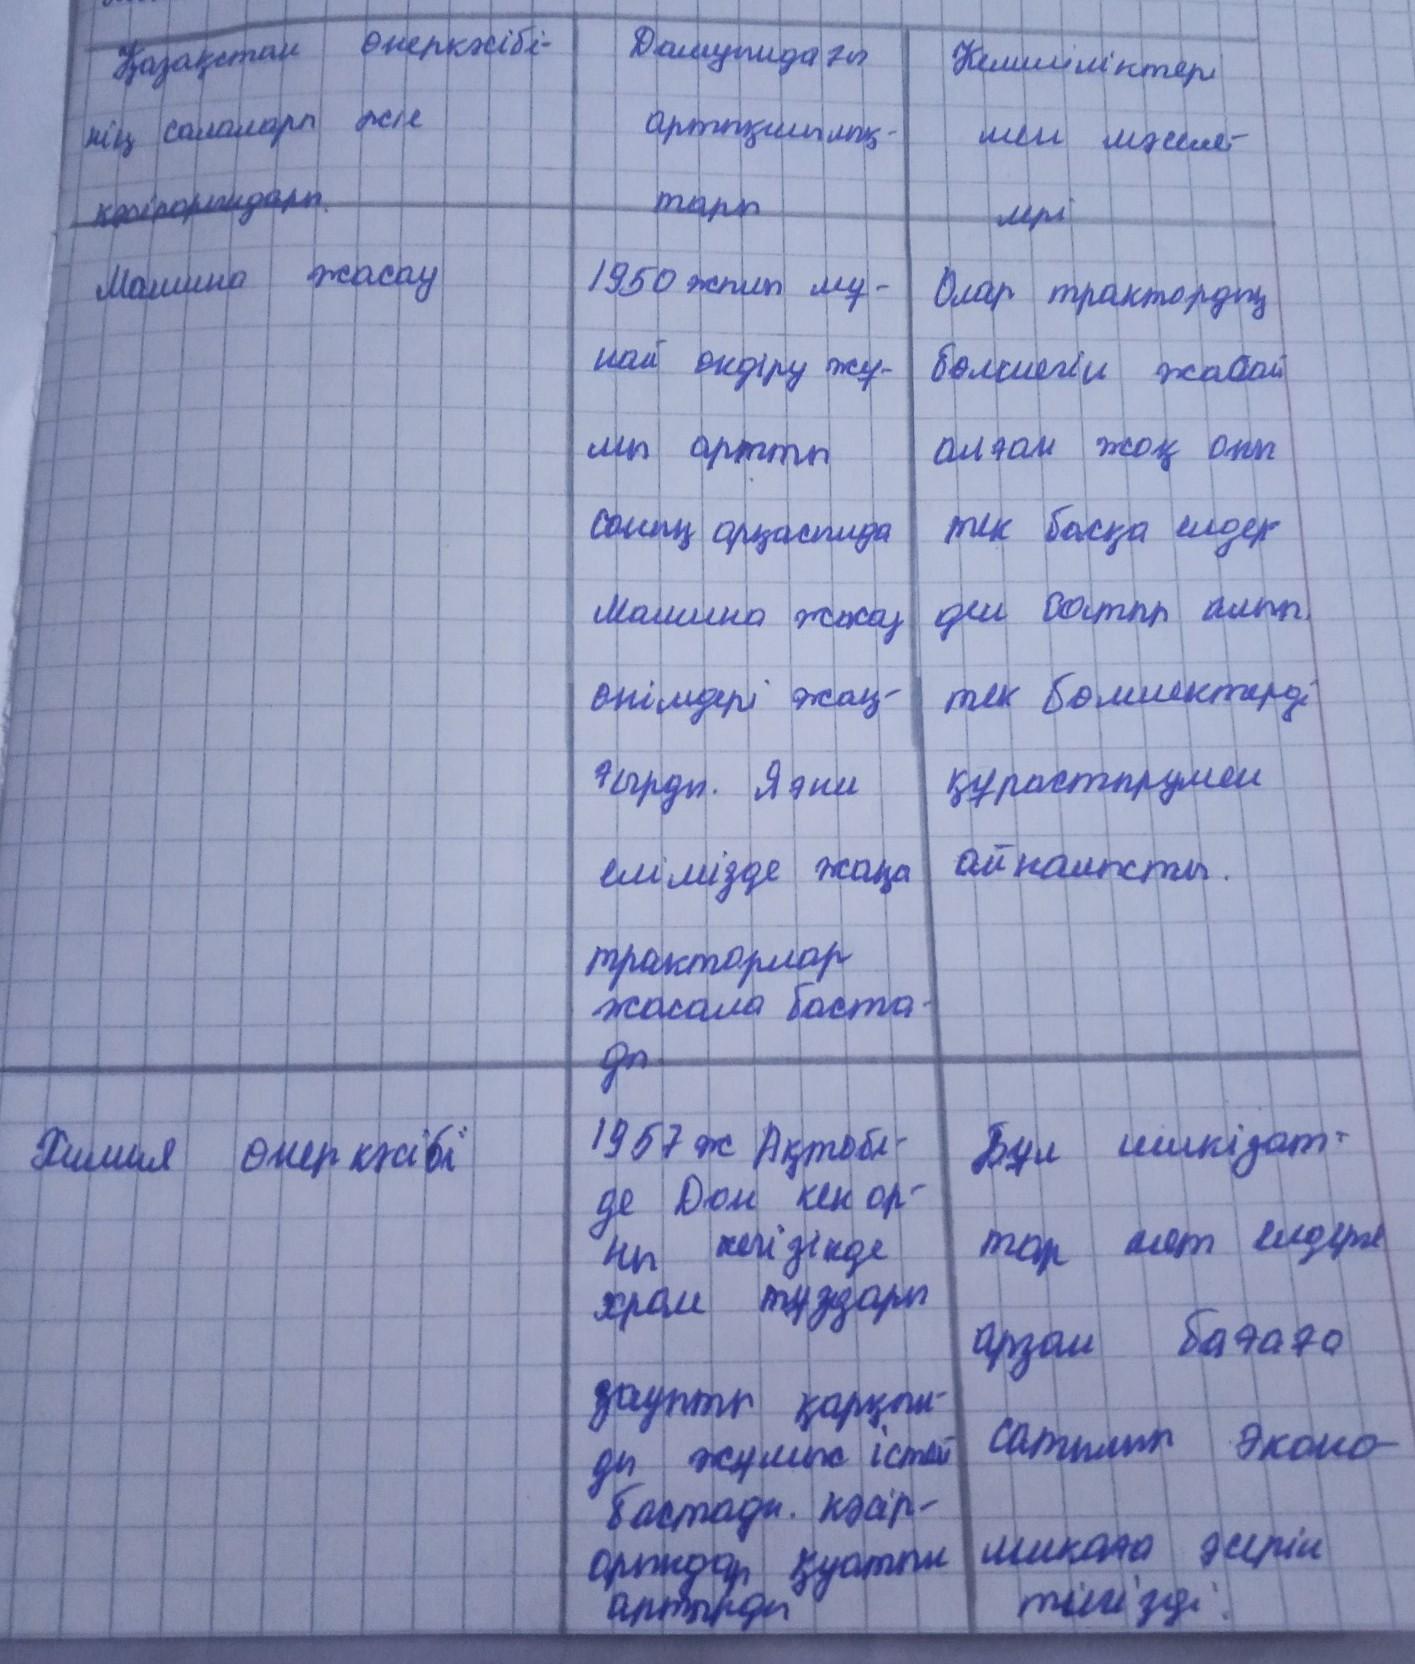 Қазақстан өнеркәсібі-
нің салалары және
кәсіпорындары.
Дамуындағы
артықшылық-
тары
Кемшіліктері
мен мәселе-
лері
Машина жасау
1950 жылы мұ-
най өндіру жұ-
мы артты
соның арқасында
машина жасау
өнімдері жаң-
ғырды. Яғни
елімізде жаңа
тракторлар
жасала баста-
ды
Олар трактордың
бөлшегін жасай
алған жоқ оны
тек басқа елдер
ден сатып алып,
тек бөлшектерді
құрастырумен
айналысты.
Химия өнеркәсібі
1957 ж Ақтөбе-
де Дон кен ор-
ны негізінде
хром тұздары
зауыты қарқын-
ды жұмыс істей
бастады. Кәсіп-
орындар қуатын
артырды
Бұл шикізат-
тар шет елдерге
арзан бағаға
сатылып эконо-
микаға әсерін
тигізді.